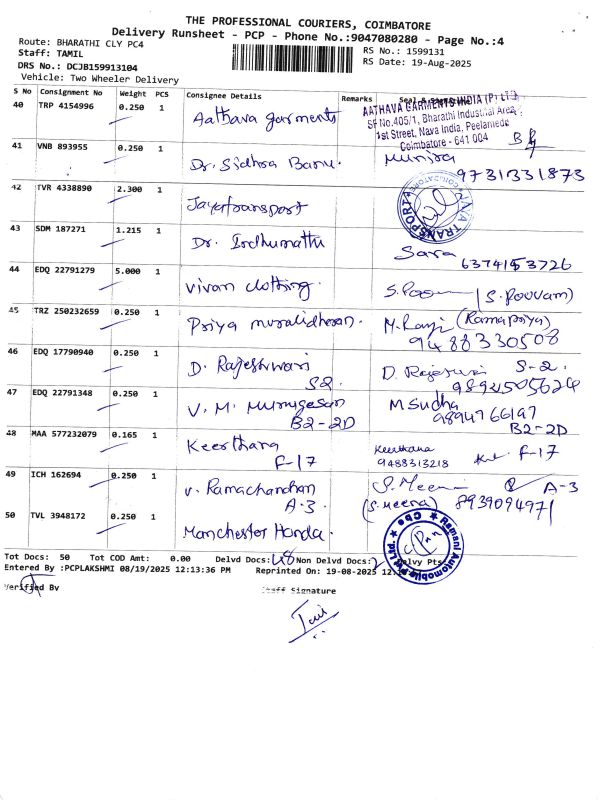 THE PROFESSIONAL COURIERS, COIMBATORE
Delivery Runsheet - PCP - Phone No.:9047080280 - Page No.:4
Route: BHARATHI CLY PC4
RS No.: 1599131
Staff: TAMIL
RS Date: 19-Aug-2025
DRS No.: DCJB159913104
Vehicle: Two Wheeler Delivery
S No Consignment No Weight PCS Consignee Details Remarks Seal &
40 TRP 4154996 0.250 1 Aathava garments
AATHAVA GARMENTS INDIA (P) LTD
SF No.405/1, Bharathi Industrial Area
1st Street, Nava India, Peelamedu
Coimbatore - 641 004
41 VNB 893955 0.250 1 Dr. Sidhra Banu. Munira
9731331873
42 TVR 4338890 2.300 1 Jaya transport
JAYA TRANSPORT
43 SDM 187271 1.215 1 Dr. Indhumathi Sara
6374153726
44 EDQ 22791279 5.000 1 Vivan clothing. S. Poo (S. Poovam)
45 TRZ 250232659 0.250 1 Priya muralidharan. M. Ramji (Ramapriya)
9488330508
46 EDQ 17790940 0.250 1 D. Rajeshwari S2. D. Rajesuri S-2.
9894505624
47 EDQ 22791348 0.250 1 V. M. Murugesan B2-2D M Sudha
9894766197
B2-2D
48 MAA 577232079 0.165 1 Keerthana F-17 Keerthana F-17
9488313218
49 ICH 162694 0.250 1 V. Ramachandran A-3. S. Meera A-3
(S. Meera) 8939094971
50 TVL 3948172 0.250 1 Manchester Honda.
Ramani Automobile Pvt Ltd. Cbe
Tot Docs: 50 Tot COD Amt: 0.00 Delvd Docs: 48 Non Delvd Docs: 2 Delvy Pts
Entered By :PCPLAKSHMI 08/19/2025 12:13:36 PM Reprinted On: 19-08-2025
Verified By Staff Signature